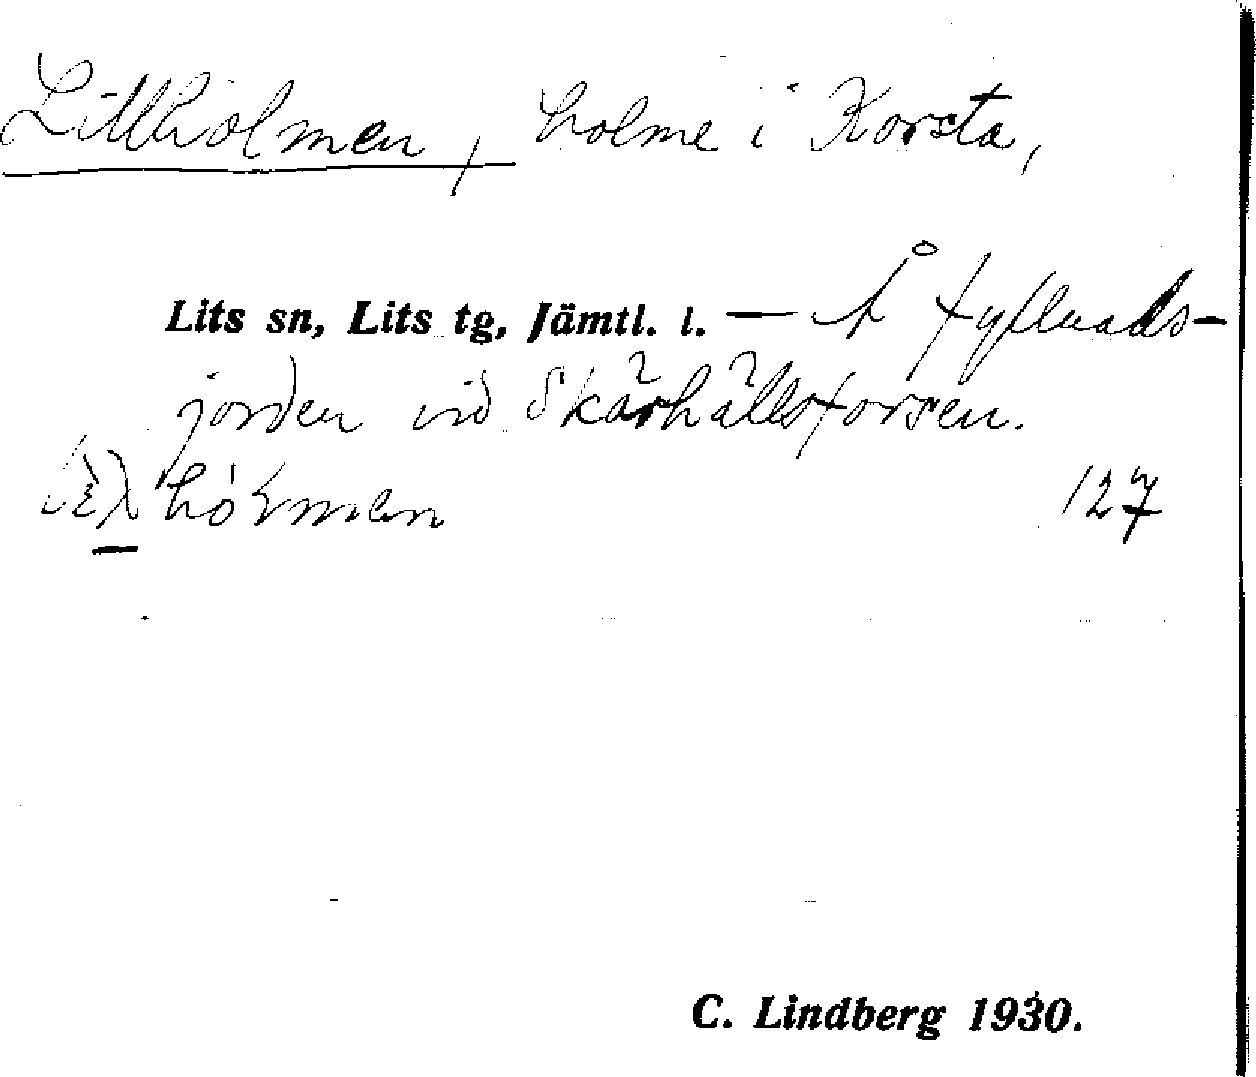 Lillholmen, holme i Korsta,
Lits sn, Lits tg, Jämtl. l. — Å fyllnads-
jorden vid Skärhällsforsen.
127
C. Lindberg 1930.